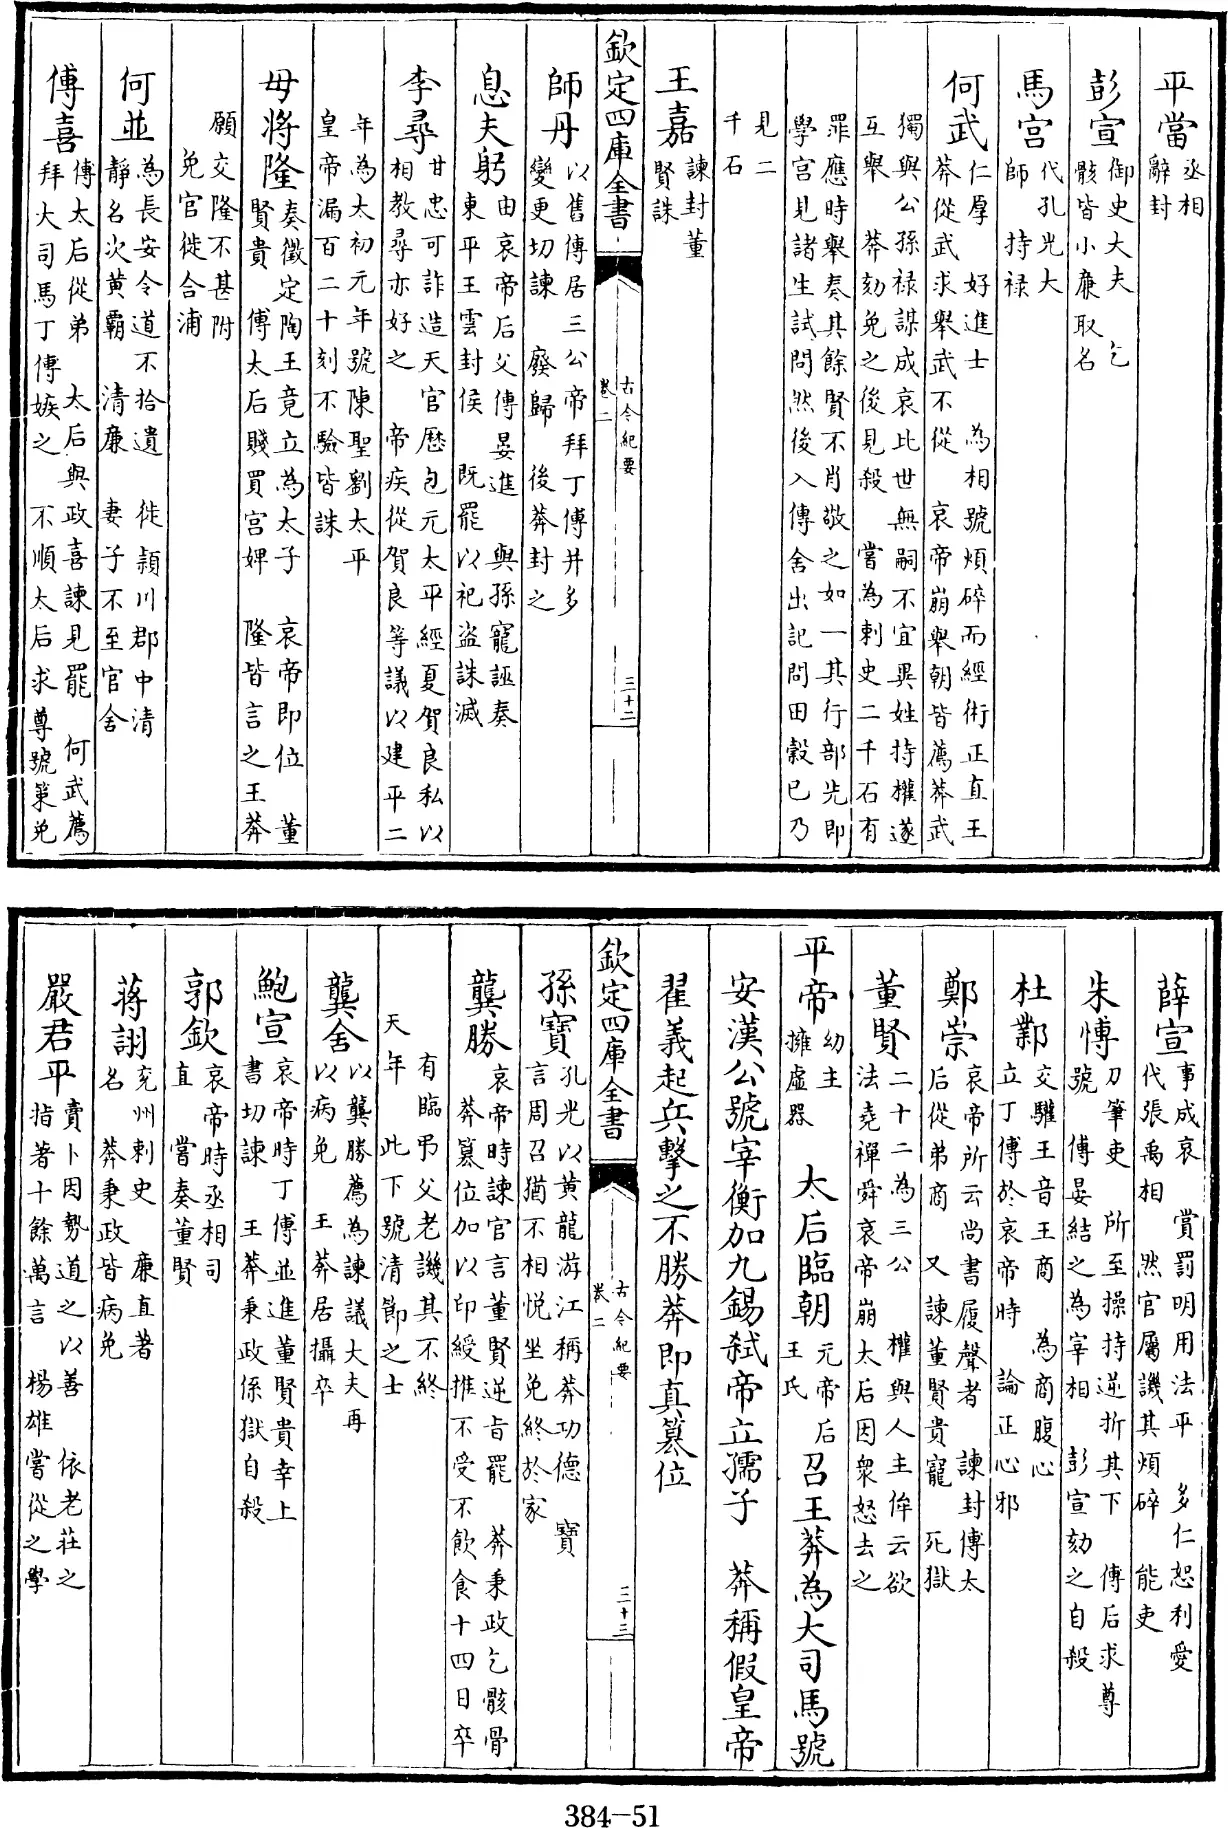 平當丞相
辭封
彭宣御史大夫　乞
骸皆小廉取名
馬宮代孔光大
師　持禄
何武仁厚　好進士　為相號煩碎而經術正直王
莽從武求舉武不從　哀帝崩舉朝皆薦莽武
獨與公孫禄謀成哀比世無嗣不宜異姓持權遂
互舉　莽劾免之後見殺　嘗為刺史二千石有
罪應時舉奏其餘賢不肖敬之如一其行部先即
學宮見諸生試問然後入傳舍出記問田穀已乃
見二
千石
王嘉諫封董
賢誅
欽定四庫全書
古今紀要
卷二
三十二
師丹以舊傅居三公帝拜丁傅并多
變更切諫　廢歸　後莽封之
息夫躬由哀帝后父傅晏進　與孫寵誣奏
東平王雲封侯　既罷以祀盜誅滅
李尋甘忠可詐造天官歷包元太平經夏賀良私以
相教尋亦好之　帝疾從賀良等議以建平二
年為太初元年號陳聖劉太平
皇帝漏百二十刻不驗皆誅
毋將隆奏徵定陶王竟立為太子　哀帝即位　董
賢貴　傅太后賤買宮婢　隆皆言之王莽
願交隆不甚附
免官徙合浦
何並為長安令道不拾遺　徙頴川郡中清
靜名次黄霸　清廉　妻子不至官舍
傅喜傅太后從弟　太后與政喜諫見罷　何武薦
拜大司馬丁傅嫉之　不順太后求尊號策免
薛宣事成哀　賞罰明用法平　多仁恕利愛
代張禹相　然官屬譏其煩碎　能吏
朱博刀筆吏　所至操持逆折其下　傅后求尊
號　傅晏結之為宰相　彭宣劾之自殺
杜鄴交驩王音王商　為商腹心
立丁傅於哀帝時　論正心邪
鄭崇哀帝所云尚書履聲者　諫封傅太
后從弟商　又諫董賢貴寵　死獄
董賢二十二為三公　權與人主侔云欲
法堯禪舜哀帝崩太后因衆怒去之
平帝幼主
擁虛器　太后臨朝元帝后
王氏　召王莽為大司馬號
安漢公號宰衡加九錫弑帝立孺子　莽稱假皇帝
翟義起兵擊之不勝莽即真篡位
欽定四庫全書
古今紀要
卷二
三十三
孫寶孔光以黄龍游江稱莽功德　寶
言周召猶不相悦坐免終於家
龔勝哀帝時諫官言董賢逆旨罷　莽秉政乞骸骨
莽篡位加以印綬推不受不飲食十四日卒
有臨弔父老譏其不終
天年　此下號清節之士
龔舍以龔勝薦為諫議大夫再
以病免　王莽居攝卒
鮑宣哀帝時丁傅並進董賢貴幸上
書切諫　王莽秉政係獄自殺
郭欽哀帝時丞相司
直　嘗奏董賢
蔣詡兖州刺史　廉直著
名　莽秉政皆病免
嚴君平賣卜因勢道之以善　依老莊之
指著十餘萬言　楊雄嘗從之學
384-51